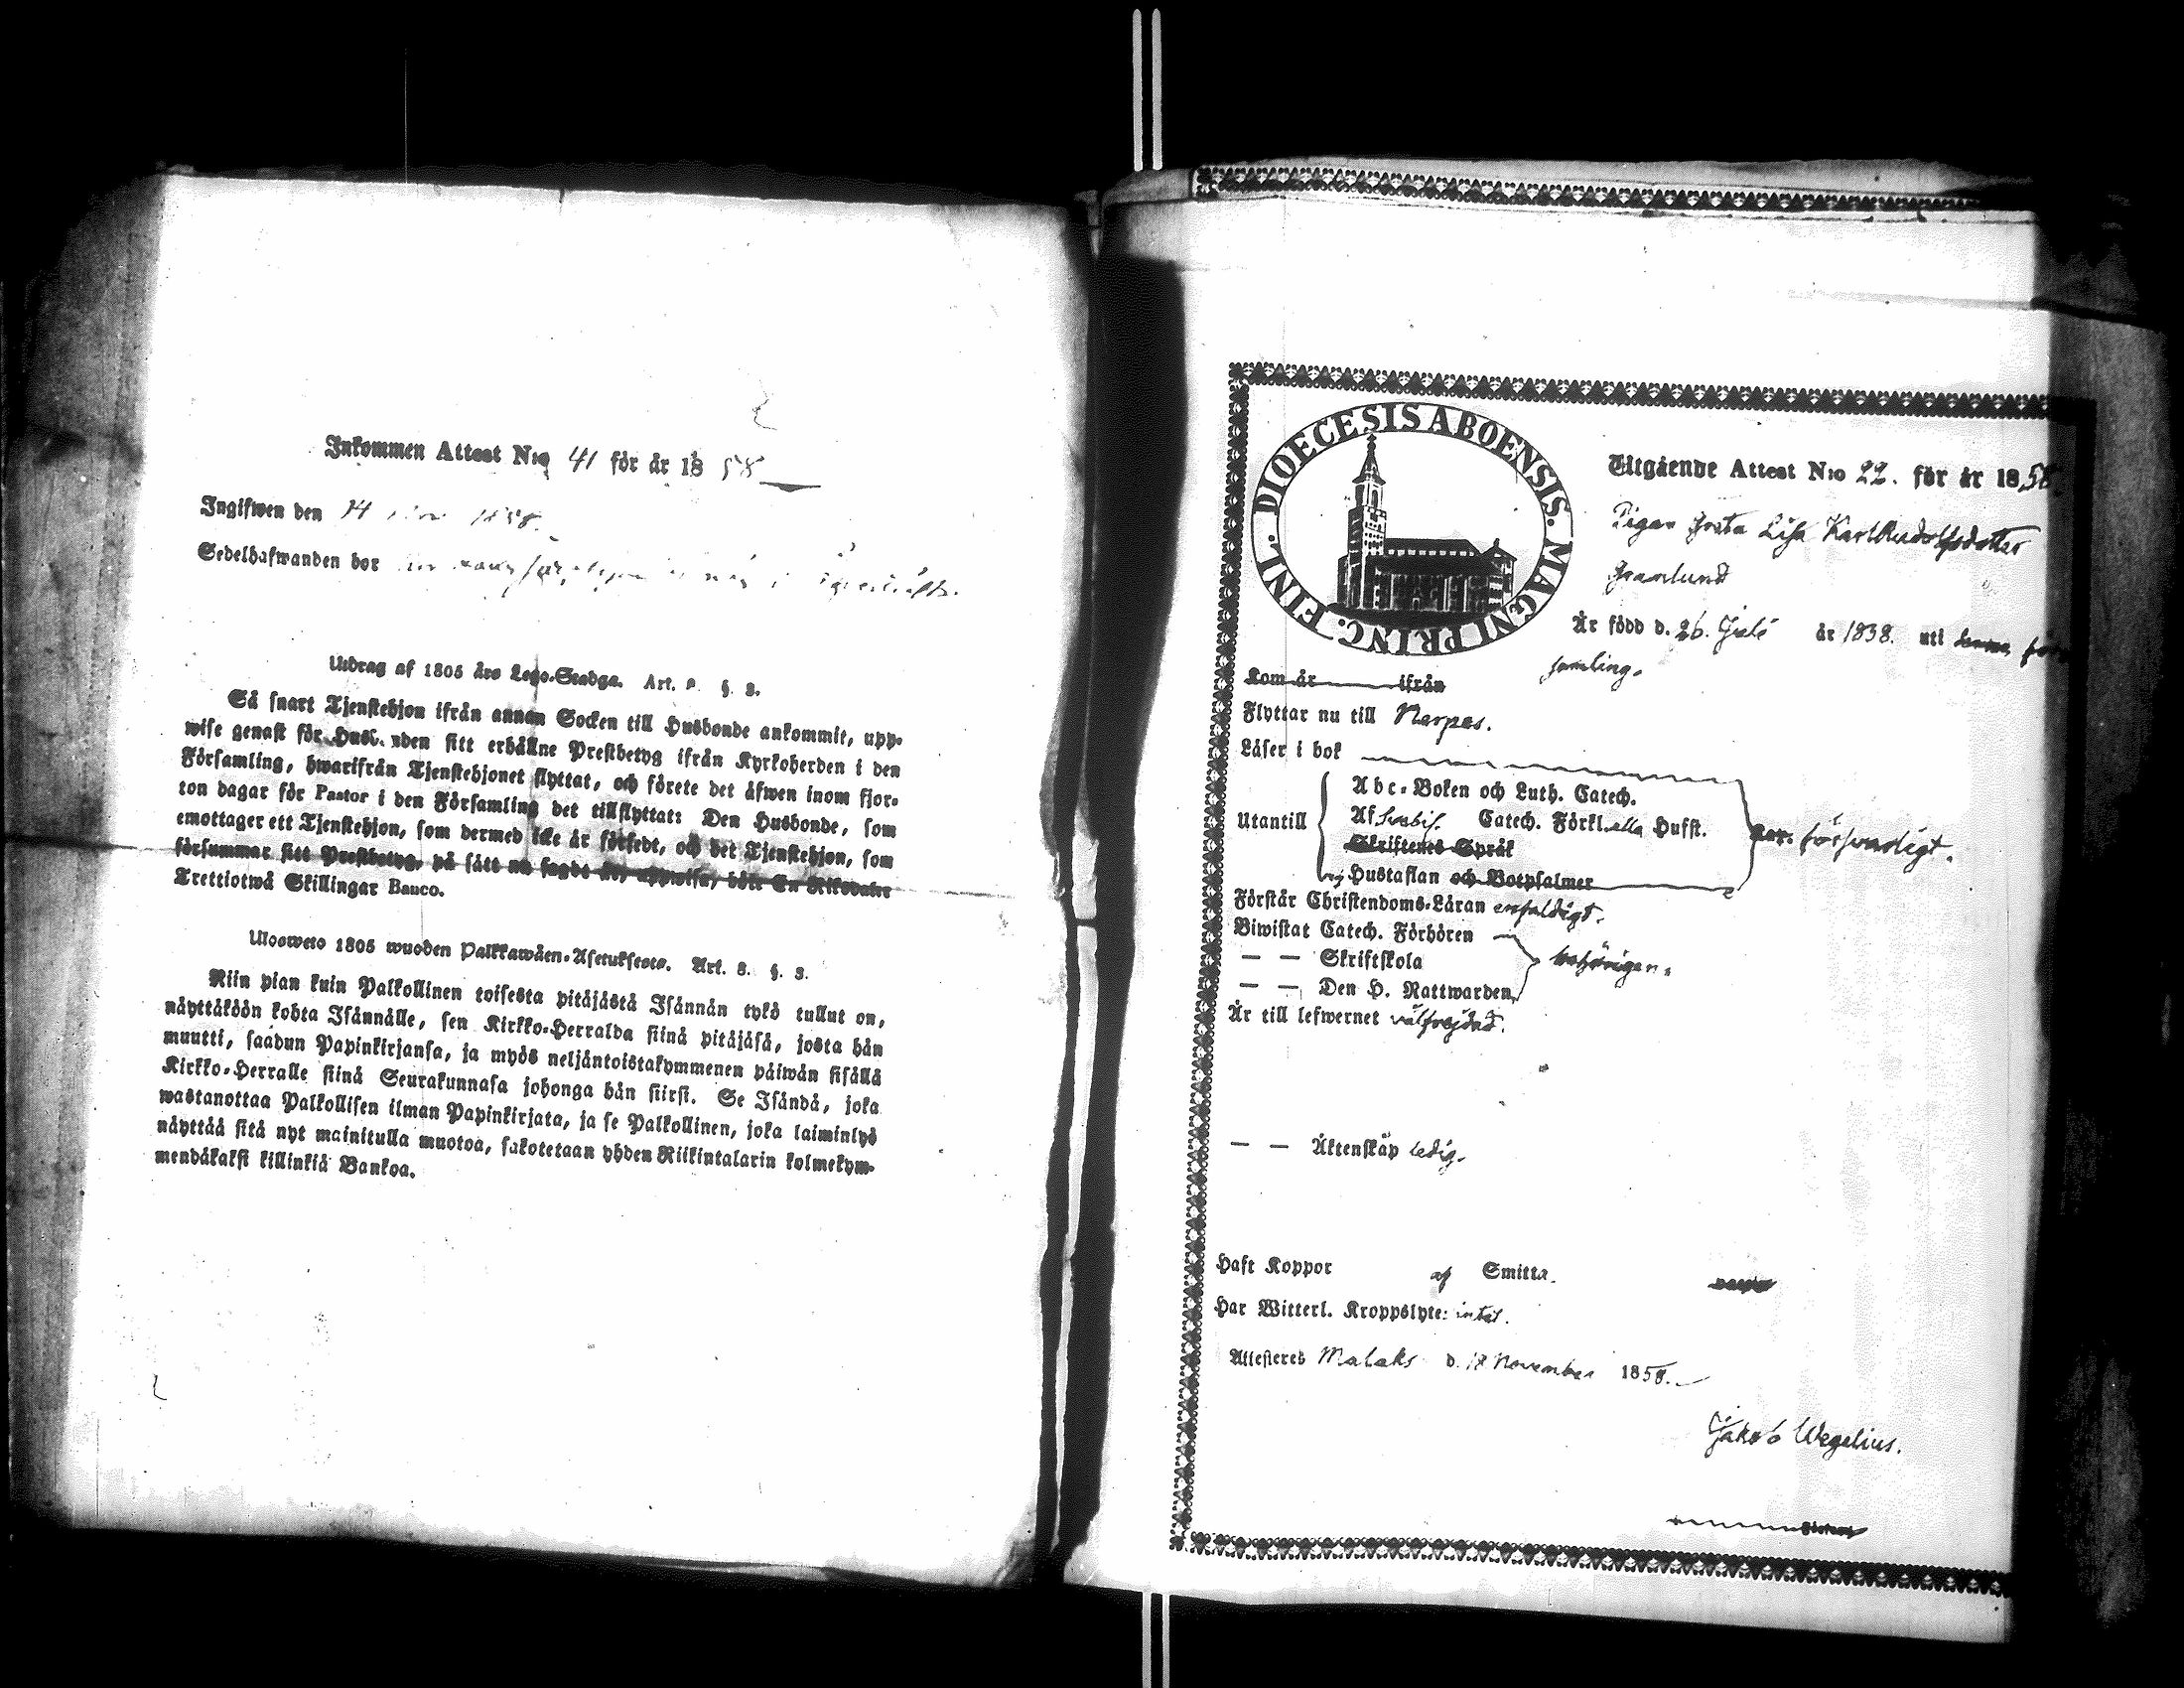 Inkommen Attest N:o 41 för år 1858
Ingifwen den 14 1858.
Sedelhafwanden bor
Utdrag af 1805 års Lego-Stadga. Art. §. 3.
Så snart Tjenstehjon ifrån annan Socken till Husbonde ankommit, upp-
wise genast för Husb. nden sitt erhållne Prestbetyg ifrån Kyrkoherden i den
Församling, hwarifrån Tjenstehjonet flyttat, och förete det äfwen inom fjor-
ton dagar för Pastor i den Församling det tillflyttat: Den Husbonde, som
emottager ett Tjenstehjon, som dermed icke är försedt, och det Tjenstehjon, som
försummar sitt Prestbetyg, på sätt nu sagdt är, uppwisa, böte En Riksdaler
Trettiotwå Skillingar Banco.
Ulosweto 1805 wuoden Palkkawäen-Asetuksesta. Art. 8. §. 3.
Niin pian kuin Palkollinen toisesta pitäjästä Isännän tykö tullut on,
näyttäköön kohta Isännälle, sen Kirkko-Herralda siinä pitäjäsä, josta hän
muutti, saadun Papinkirjansa, ja myös neljäntoistakymmenen päiwän sisällä
Kirkko-Herralle siinä Seurakunnasa johonga hän siirsi. Se Isändä, joka
wastanottaa Palkollisen ilman Papinkirjata, ja se Palkollinen, joka laiminlyö
näyttää sitä nyt mainitulla muotoa, sakotetaan yhden Riikintalarin kolmekym-
mendäkaksi killinkiä Bankoa.
DIOECESIS ABOENSIS. MAGNI PRINC. FINL.
Utgående Attest N:o 22. för år 1858.
Pigan Greta Lisa Karl Rudolfsdotter
Granlund
Är född d. 26. Juli år 1838. uti denna för-
samling.
Kom år ifrån
Flyttar nu till Narpes.
Läser i bok
Utantill
Abc-Boken och Luth. Catech.
Af Svebil. Catech. Förkl. Husst.
Skriftenes Språk
Hustaflan och Botpsalmer
försvarligt.
Förstår Christendoms-Läran enfaldigt.
Biwistat Catech. Förhören
— — Skriftskola
— — Den H. Nattwarden
behörigen.
Är till lefwernet välfrejdad.
— — Äktenskap ledig.
Haft Koppor af Smitta.
Har Witterl. Kroppslyte: intet.
Attesteres Malaks d. 18 November 1858.
Jakob Wegelius.